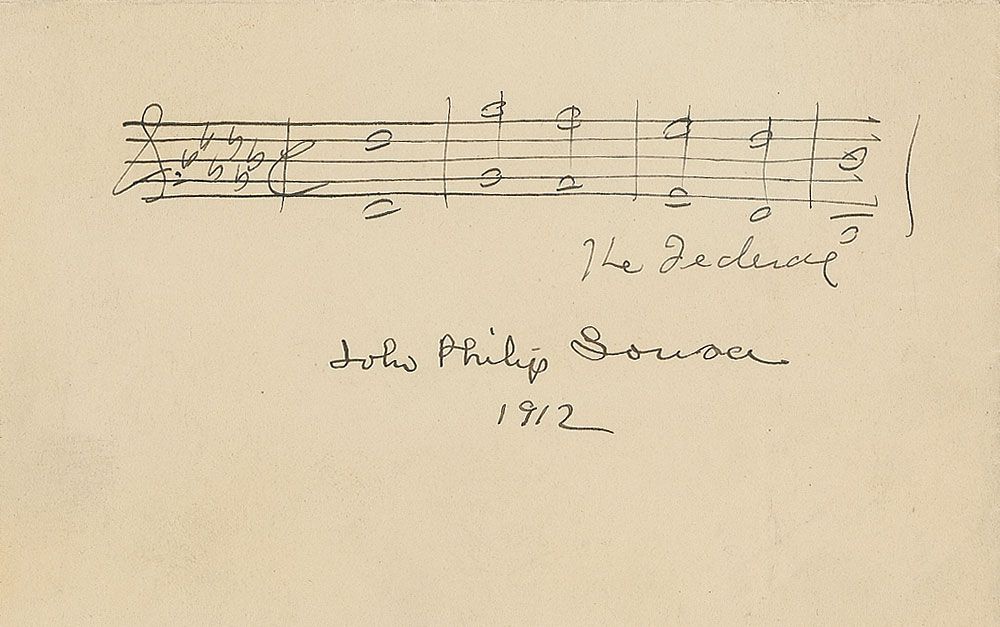 The Federal
John Philip Sousa
1912